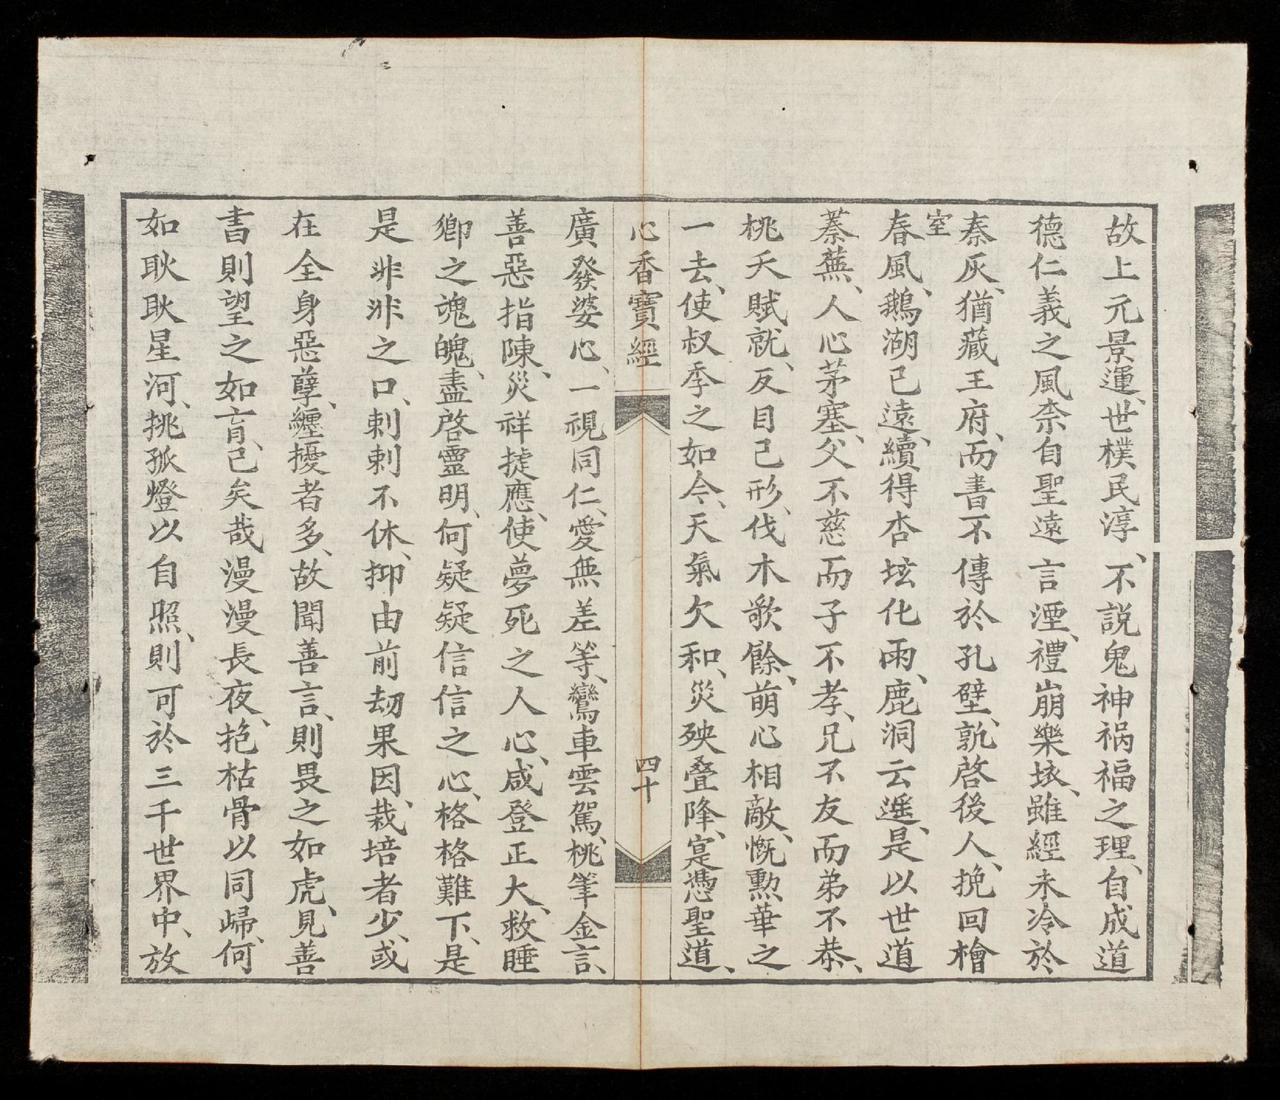 故上元景運、世樸民淳、不説鬼神祸福之理、自成道
德仁義之風奈自聖遠言湮、禮崩樂垓、雖經未冷於
秦灰、猶藏王府、而書不傳於孔壁、孰啓後人、挽回檜
室
春風、鵝湖已遠、續得杏坛化雨、鹿洞云遥、是以世道
蓁蕪、人心茅塞、父不慈而子不孝、兄不友而弟不恭、
桃夭賦就、反目己形、伐木歌餘、萌心相敵、慨勲華之
一去、使叔季之如今、天氣欠和、災殃叠降、寔憑聖道、
心香寳經
四十
廣發婆心、一視同仁、愛無差等、鸞車雲駕、桃筆金言、
善惡指陳、災祥捷應、使夢死之人心、咸登正大、救睡
鄉之魂魄、盡啓靈明、何疑疑信信之心、格格難下、是
是非非之口、刺刺不休、抑由前刼果因、栽培者少、或
在全身惡孽、纏擾者多、故聞善言、則畏之如虎、見善
書則望之如盲、已矣哉漫漫長夜、抱枯骨以同歸、何
如耿耿星河、挑孤燈以自照、則可於三千世界中、放